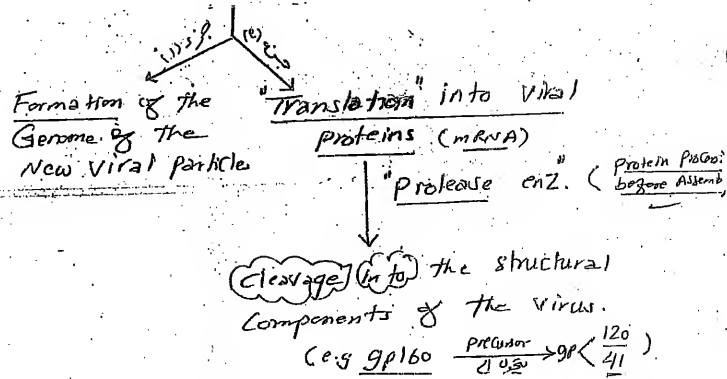 جزء (١)
جزء (٢)
Formation of the
Genome of the
New Viral particle
"Translation" into viral
proteins (mRNA)
"Protease enz." (Protein Proces:
before Assemb
Cleavage into the structural
Components of the virus.
(e.g gp160 precursor → gp < 120
41 )